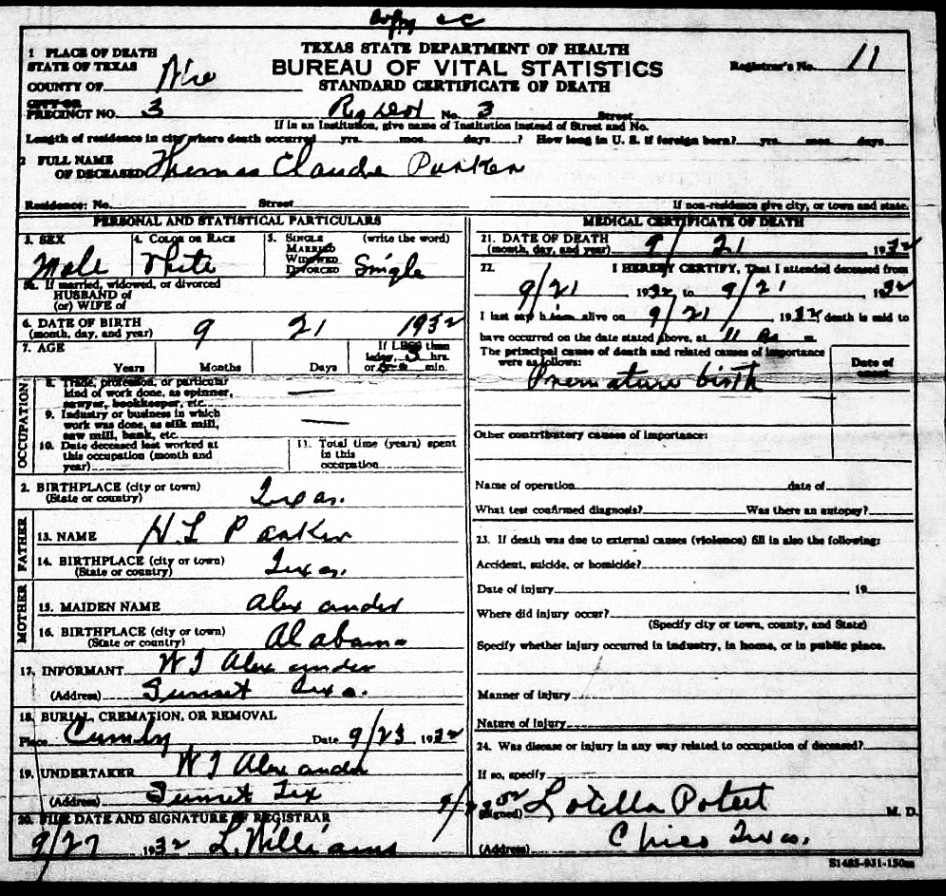 Copy
TEXAS STATE DEPARTMENT OF HEALTH
BUREAU OF VITAL STATISTICS
STANDARD CERTIFICATE OF DEATH
Registrar's No. 11
1 PLACE OF DEATH
STATE OF TEXAS
COUNTY OF
CITY OR
PRECINCT NO. 3 No. 3 Street
If in an Institution, give name of Institution instead of Street and No.
Length of residence in city where death occurred yrs. mos. days ? How long in U. S. if foreign born? yrs. mos. days
2 FULL NAME
OF DECEASED Thomas Claude Parker
Residence: No. Street If non-residence give city, or town and state.
PERSONAL AND STATISTICAL PARTICULARS
3. SEX Male
4. COLOR OR RACE White
5. SINGLE MARRIED WIDOWED DIVORCED (write the word) Single
5a. If married, widowed, or divorced
HUSBAND of
(or) WIFE of
6. DATE OF BIRTH
(month, day, and year) 9 21 1932
7. AGE
Years Months Days If LESS than 1 day, 3 hrs. or min.
OCCUPATION
8. Trade, profession, or particular
kind of work done, as spinner,
sawyer, bookkeeper, etc. —
9. Industry or business in which
work was done, as silk mill,
saw mill, bank, etc. —
10. Date deceased last worked at
this occupation (month and
year)
11. Total time (years) spent
in this
occupation
2. BIRTHPLACE (city or town)
(State or country) Texas.
FATHER
13. NAME H L Parker
14. BIRTHPLACE (city or town)
(State or country) Texas.
MOTHER
15. MAIDEN NAME Alexander
16. BIRTHPLACE (city or town)
(State or country) Alabama
17. INFORMANT W J Alexander
(Address) Sunset Texas.
18. BURIAL, CREMATION, OR REMOVAL
Place Cumby Date 9/23 1932
19. UNDERTAKER W J Alexander
(Address) Sunset Tex
20. FILE DATE AND SIGNATURE OF REGISTRAR
9/27 1932 L. Williams
MEDICAL CERTIFICATE OF DEATH
21. DATE OF DEATH
(month, day, and year) 9/21 1932
22. I HEREBY CERTIFY, That I attended deceased from
9/21 1932 to 9/21 1932
I last saw him alive on 9/21 1932, death is said to
have occurred on the date stated above, at 11 m.
The principal cause of death and related causes of importance
were as follows:
Date of onset
Premature birth
Other contributory causes of importance:
Name of operation date of
What test confirmed diagnosis? Was there an autopsy?
23. If death was due to external causes (violence) fill in also the following:
Accident, suicide, or homicide?
Date of injury 19
Where did injury occur?
(Specify city or town, county, and State)
Specify whether injury occurred in industry, in home, or in public place.
Manner of injury
Nature of injury
24. Was disease or injury in any way related to occupation of deceased?
If so, specify
(Signed) Poteet M. D.
(Address) Chico Texas.
S1485-931-150m